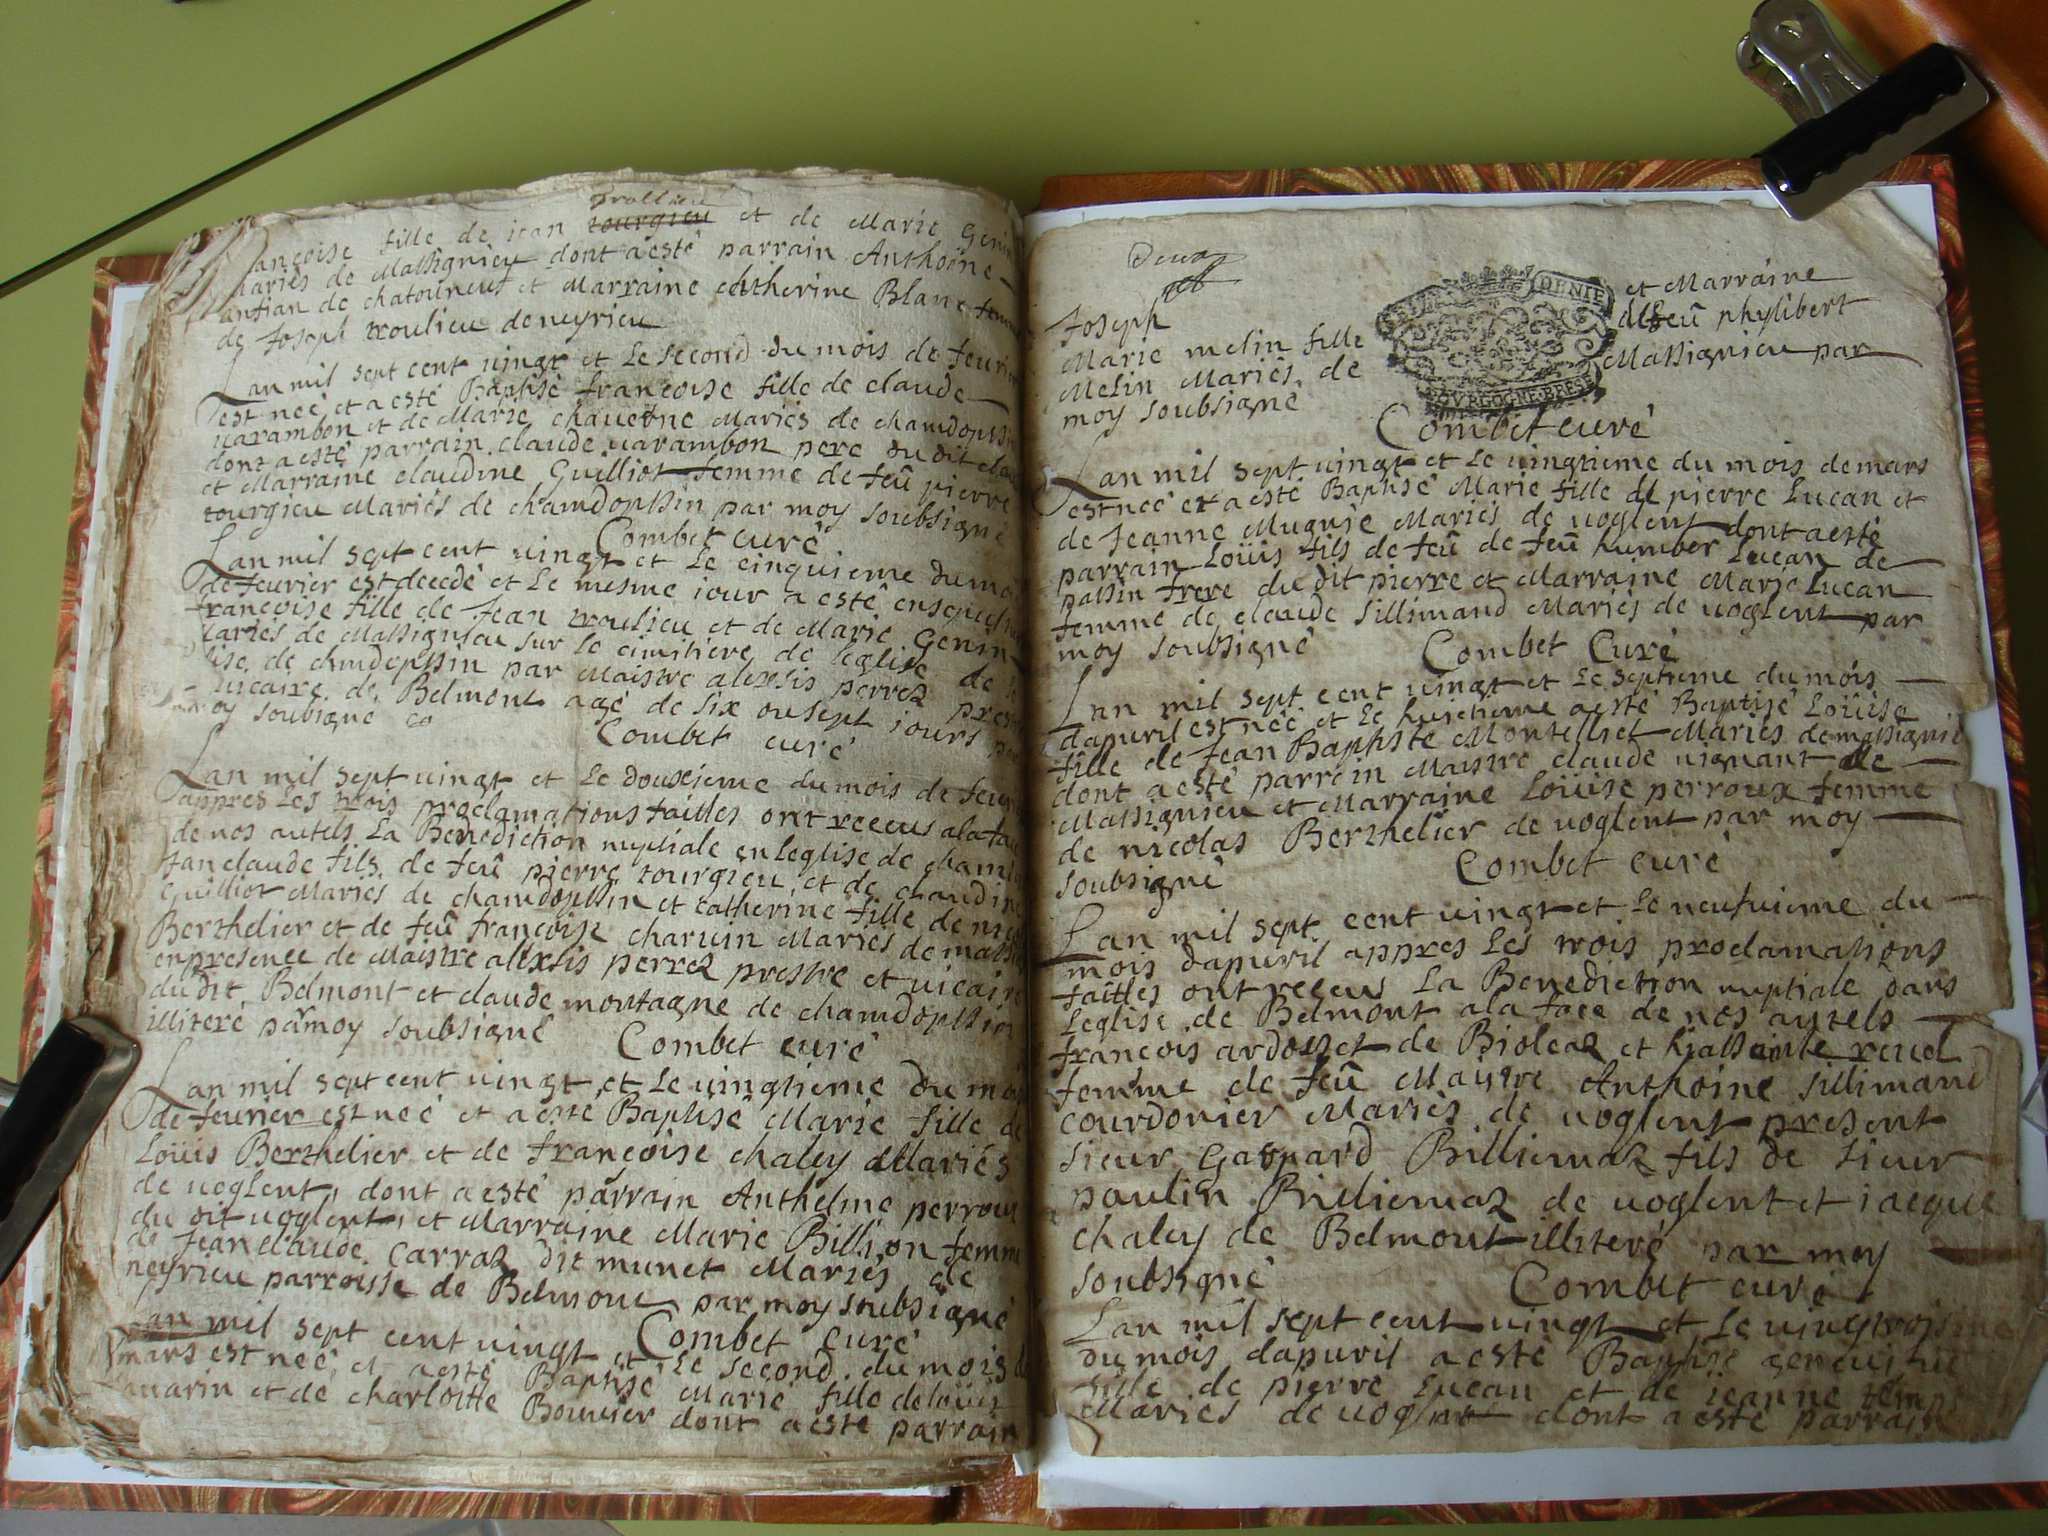 trollieu
ancoise fille de jean tourgieu et de Marie Genin
mariés de Massignieu dont a esté parrain Anthoine
antian de chatouneuf et Marraine Catherine Blanc femme
de Joseph troulieu de neyrieu
Lan mil sept cent vingt et Le second du mois de feurier
est neé et a esté Baptisé françoise fille de claude
uarambon et de Marie chauetne Mariés de chamdossin
dont a esté parrain claude uarambon pere du dit claude
et Marraine claudine Guilliot femme de feû pierre
tourgieu Mariés de chamdossin par moy soubsigné
Combet curé
Lan mil sept cent vingt et Le cinquieme du mois
de feurier est decedé et Le mesme iour a esté enseueli
françoise fille de Jean troulieu et de Marie Genin
Mariés de Massignieu sur le cimitiere de leglise de
de chamdossin par Maistre alexsis perrez prestre
uicaire de Belmont agé de six ou sept iours par
moy soubigné
Combet curé
Lan mil sept uingt et Le douxieme du mois de feurier
appres Les trois proclamations faittes ont receus a la face
de nos autels La Benediction nuptiale en leglise de cham
Jan claude fils de feû pierre tourgieu et de claudine
Guilliot Mariés de chamdossin et catherine fille de nicolas
Berthelier et de feû françoise charuin Mariés de mass
en presence de Maistre alexsis perrez prestre et uicaire
du dit Belmont et claude montagne de chamdossin
illiteré par moy soubsigné
Combet curé
Lan mil sept cent uingt et Le uingtieme du mois
de feurier est neé et a esté Baptisé Marie fille de
Loüis Berthelier et de françoise chaley Mariés
de uoglent, dont a esté parrain Anthelme perroux
du dit uoglent, et Marraine Marie Billion femme
de Jean claude Carraz dit munet Mariés de
neyrieu parroisse de Belmont par moy soubsigné
Combet Curé
Lan mil sept cent uingt et Le second du mois de
mars est neé et a esté Baptisé Marie fille de Loüis
auarin et de charlotte Bouuier dont a esté parrain
Deux
Joseph et Marraine
Marie melin fille de feû phylibert
Melin Mariés de Massignieu par
moy soubsigné
DENIE
BOVRGOGNE·BRESSE
Combet curé
Lan mil sept uingt et Le uingtieme du mois de mars
est neé et a esté Baptisé Marie fille de pierre Lucan et
de Jeanne Mugnie Mariés de uoglent dont a esté
parrain Loüis fils de feû de feû humber Lucan de
passin frere du dit pierre et Marraine Marie Lucan
femme de claude sillimand Mariés de uoglent par
moy soubsigné
Combet Curé
Lan mil sept cent uingt et Le septieme du mois
dapuril est neé et Le huictieme a esté Baptisé Loüise
fille de Jean Baptiste Montelliet Mariés de massignié
dont a esté parrein Maistre claude uignant de
Massignieu et Marraine Loüise perroux femme
de nicolas Berthelier de uoglent par moy
soubsigné
Combet curé
Lan mil sept cent uingt et Le neufuieme du
mois dapuril appres Les trois proclamations
faittes ont receus La Benediction nuptiale dans
Leglise de Belmont a la face de nos autels
françois ardouzet de Bioleaz et hiassinte reud
femme de feû Maistre Anthoine sillimand
courdonier Mariés de uoglent present
sieur Gaspard Billiemaz fils de sieur
paulin Billiemaz de uoglent et iacque
chaley de Belmont illiteré par moy
soubsigné
Combet curé
Lan mil sept cent uingt et Le uingtroisime
du mois dapuril a esté Baptisé geneuieue
fille de pierre Lucan et de ieanne temp
Mariés de uoglent dont a esté parrain